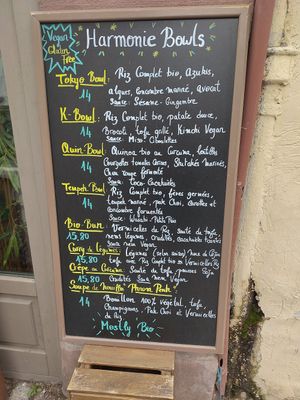 Vegan
Gluten
Free
Harmonie Bowls
Tokyo Bowl: Riz Complet bio, Azukis,
14 algues, Concombre mariné, avocat
Sauce: Sésame-Gingembre
K-Bowl: Riz Complet bio, patate douce,
14 Brocoli, tofu grillé, Kimchi Vegan
Sauce: Miso
Quin-Bowl: Quinoa bio au Curcuma, lentilles
14 Courgettes tomates Cerises, Shiitakés marinés,
Chou rouge fermenté
Sauce: Coco-Cacahuètes
Tempeh Bowl: Riz Complet bio, fèves germées,
14 tempeh mariné, pak Choi, Carottes et
Concombre fermentés
Sauce: Wasabi-Petits Pois
Bio Bun: Vermicelles de Riz, sauté de tofu,
15,80 nems légumes, Crudités, cacahuètes
Sauce nem Vegan
Curry de Légumes: Légumes
15,80 tofu, Riz Complet bio
Crêpe au Curcuma: Sauté de tofu, pousses Soja
15,80 Crudités Sauce nem Vegan
Soupe de Nouilles Phnom Penh:
14 Bouillon 100% végétal, tofu,
Champignons, Pak Choi et Vermicelles
de Riz
Mostly Bio